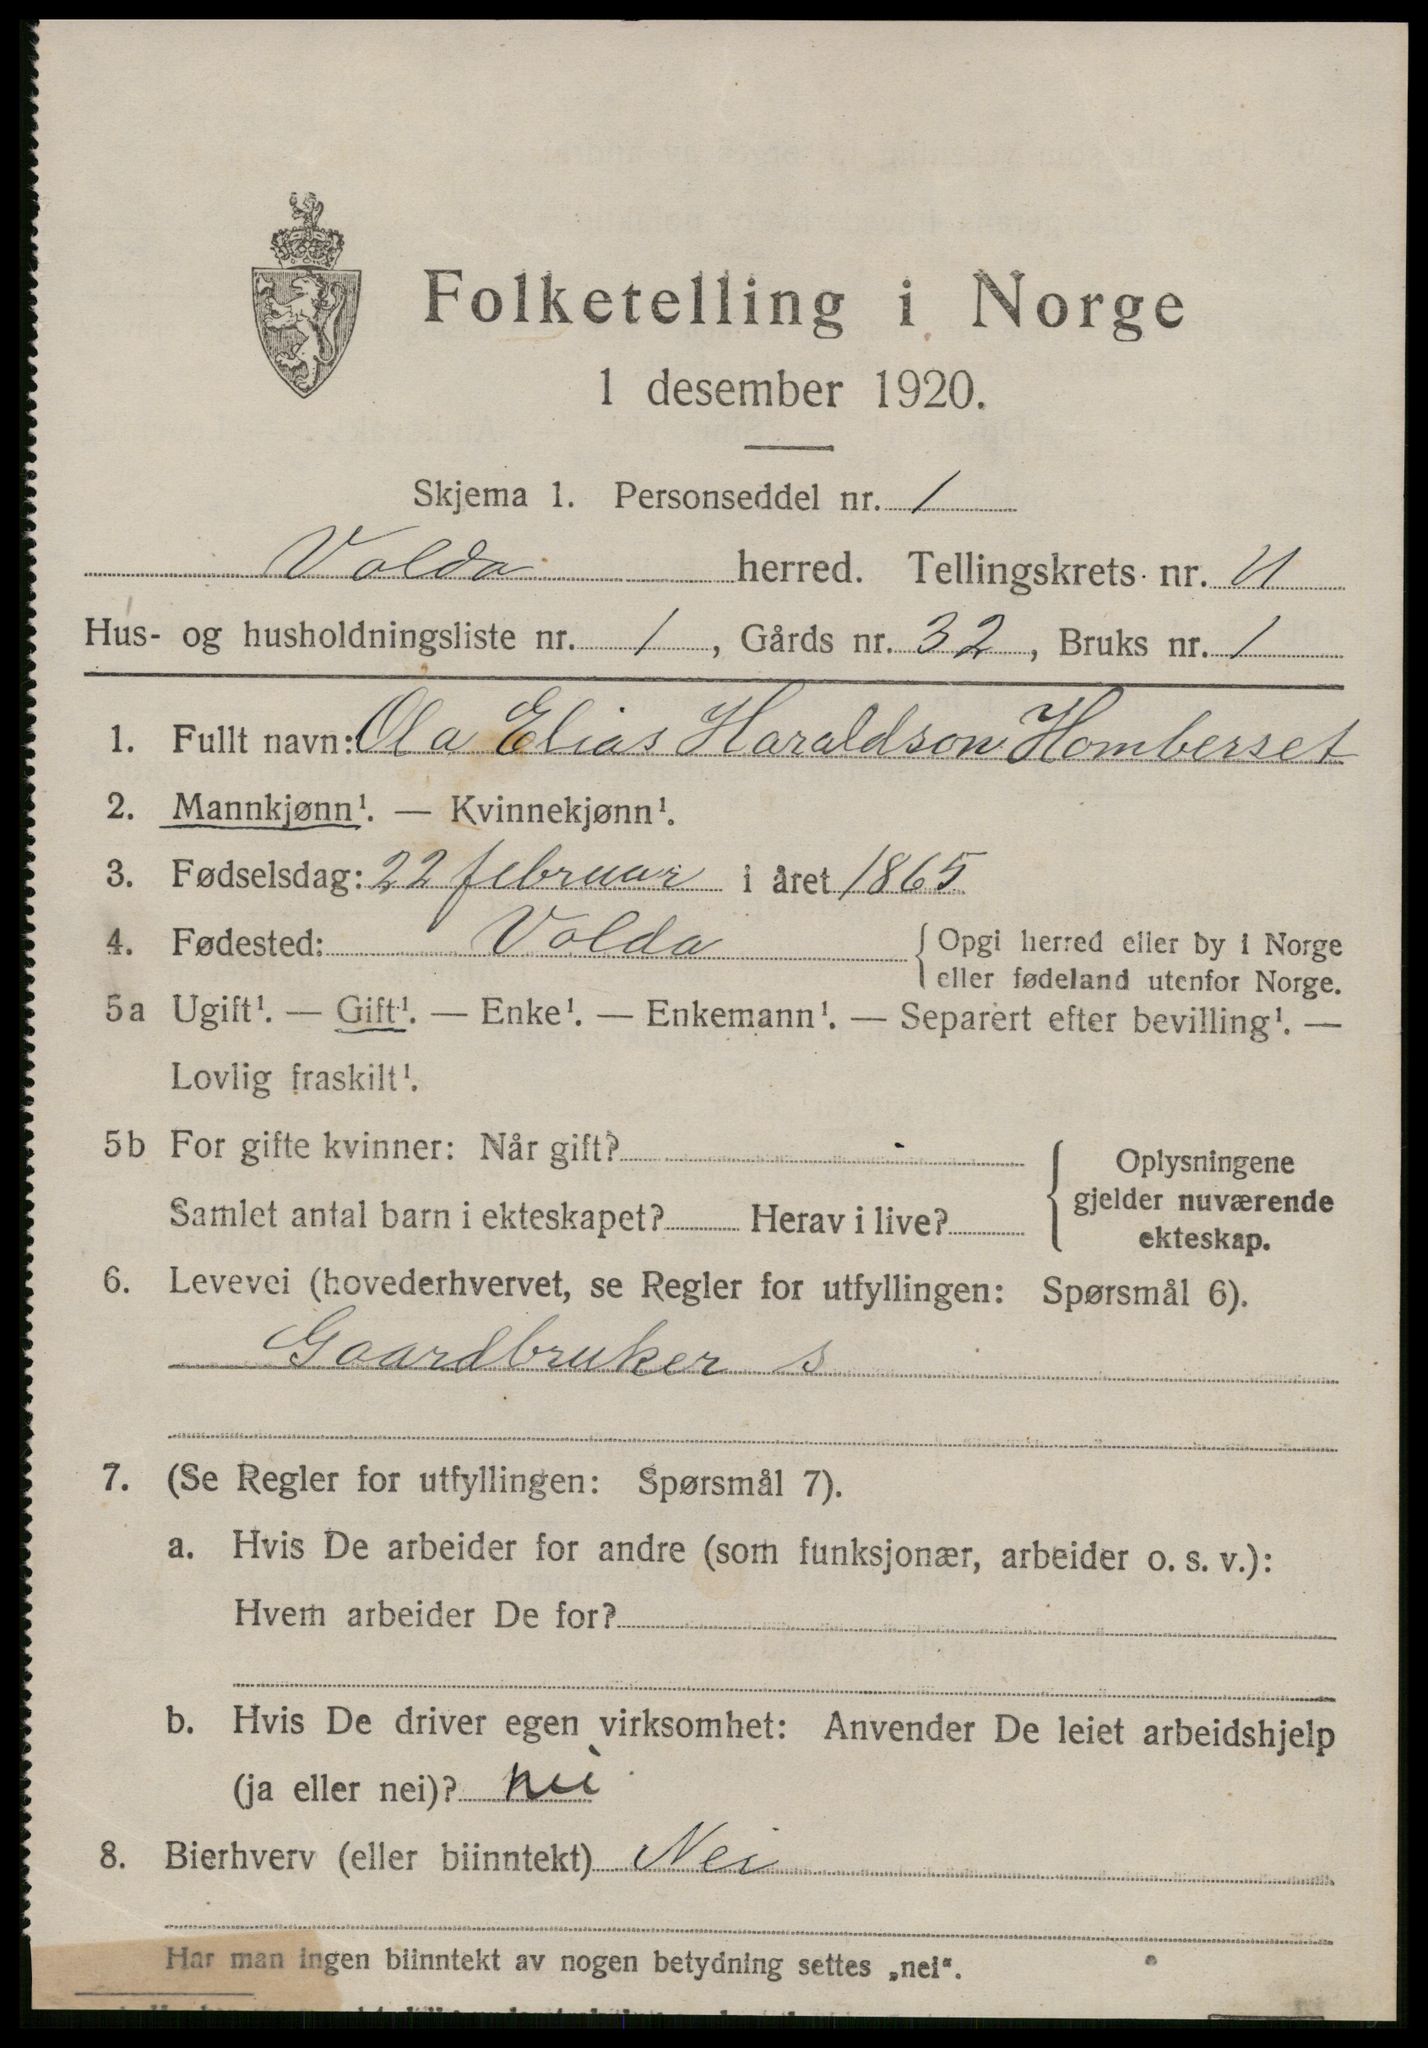 Folketelling i Norge
1 desember 1920.
Skjema 1. Personseddel nr. 1
Volda herred. Tellingskrets nr. 4
Hus- og husholdningsliste nr. 1, Gårds nr. 32, Bruks nr. 1
1. Fullt navn: Ola Elias Haraldson Homberset
2. Mannkjønn¹. — Kvinnekjønn¹.
3. Fødselsdag: 22 februar i året 1865
4. Fødested: Volda { Opgi herred eller by i Norge
eller fødeland utenfor Norge.
5a Ugift¹. — Gift¹. — Enke¹. — Enkemann¹. — Separert efter bevilling¹. —
Lovlig fraskilt¹.
5b For gifte kvinner: Når gift? { Oplysningene
gjelder nuværende
Samlet antal barn i ekteskapet? Herav i live?
ekteskap.
6. Levevei (hovederhvervet, se Regler for utfyllingen: Spørsmål 6).
Gaardbruker s
7. (Se Regler for utfyllingen: Spørsmål 7).
a. Hvis De arbeider for andre (som funksjonær, arbeider o. s. v.):
Hvem arbeider De for?
b. Hvis De driver egen virksomhet: Anvender De leiet arbeidshjelp
(ja eller nei)? nei
8. Bierhverv (eller biinntekt) Nei
Har man ingen biinntekt av nogen betydning settes „nei“.